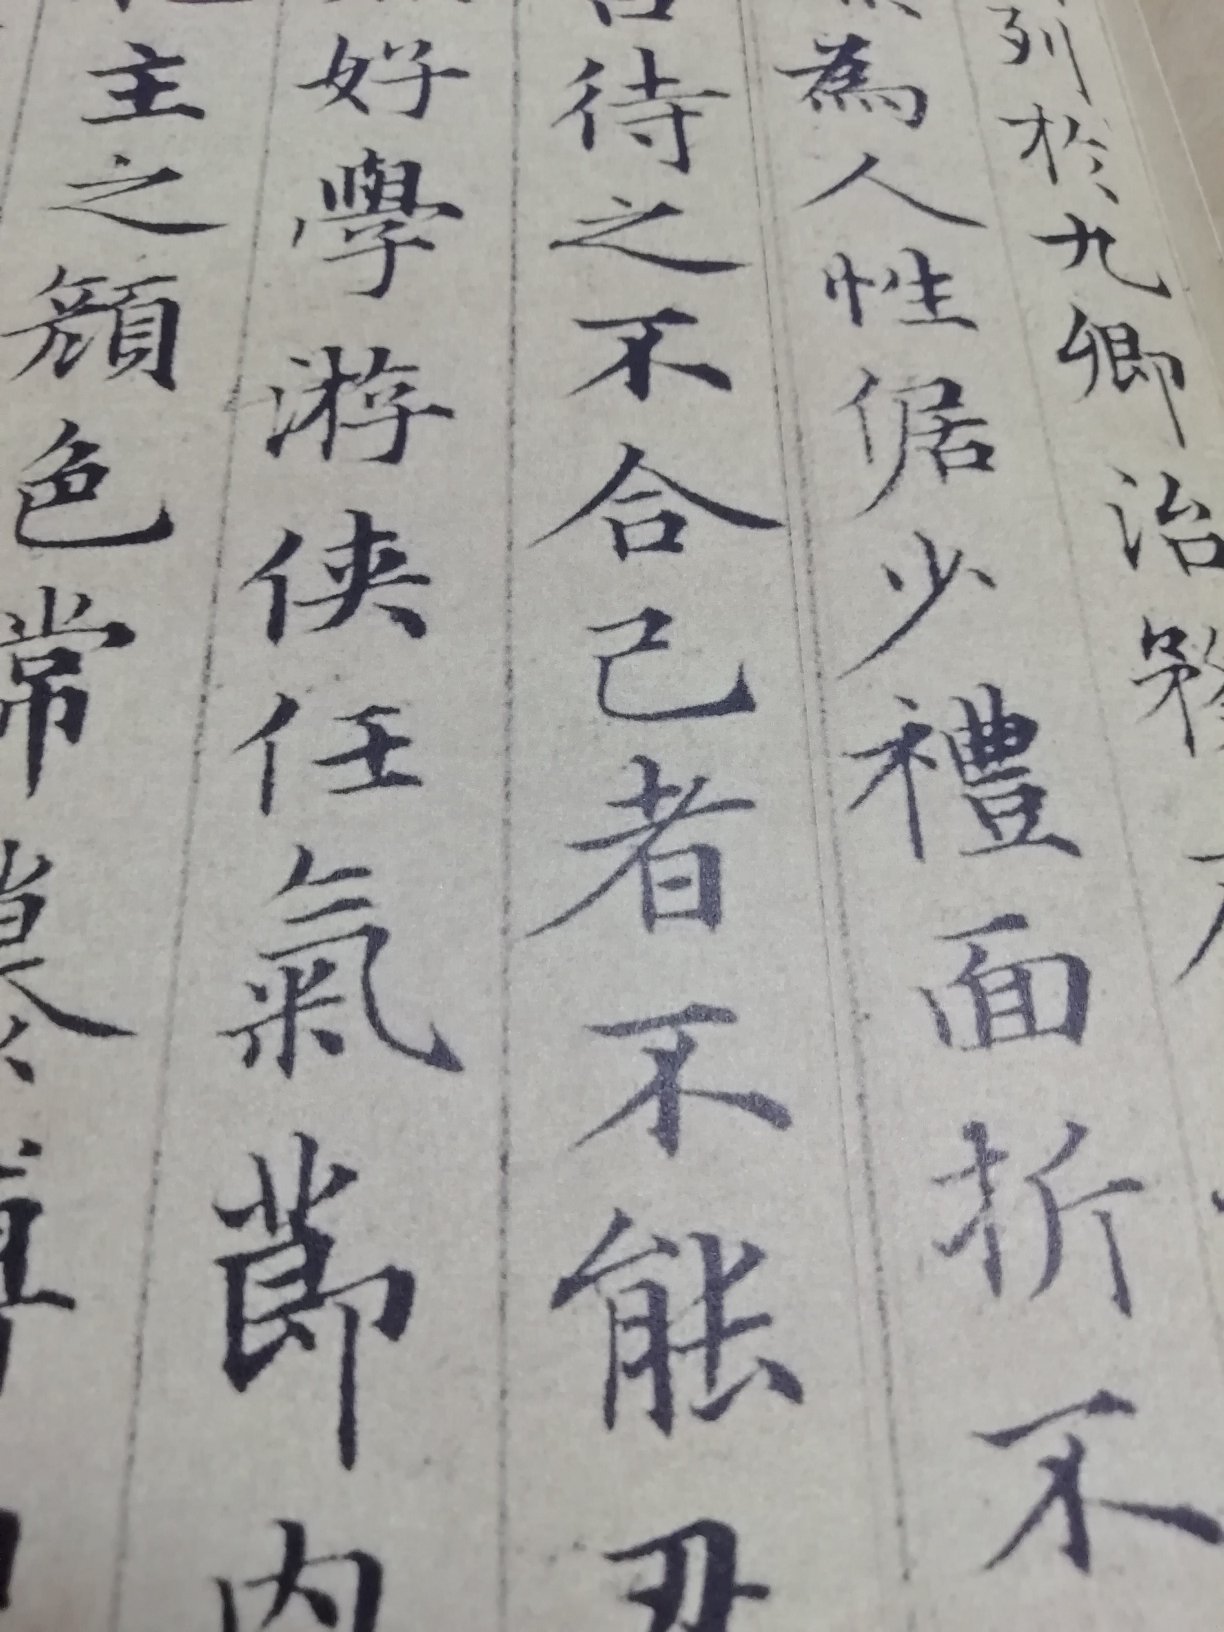 列於九卿治務
為人性倨少禮面折不
待之不合己者不能
好學游俠任氣節內
主之顏色常慕